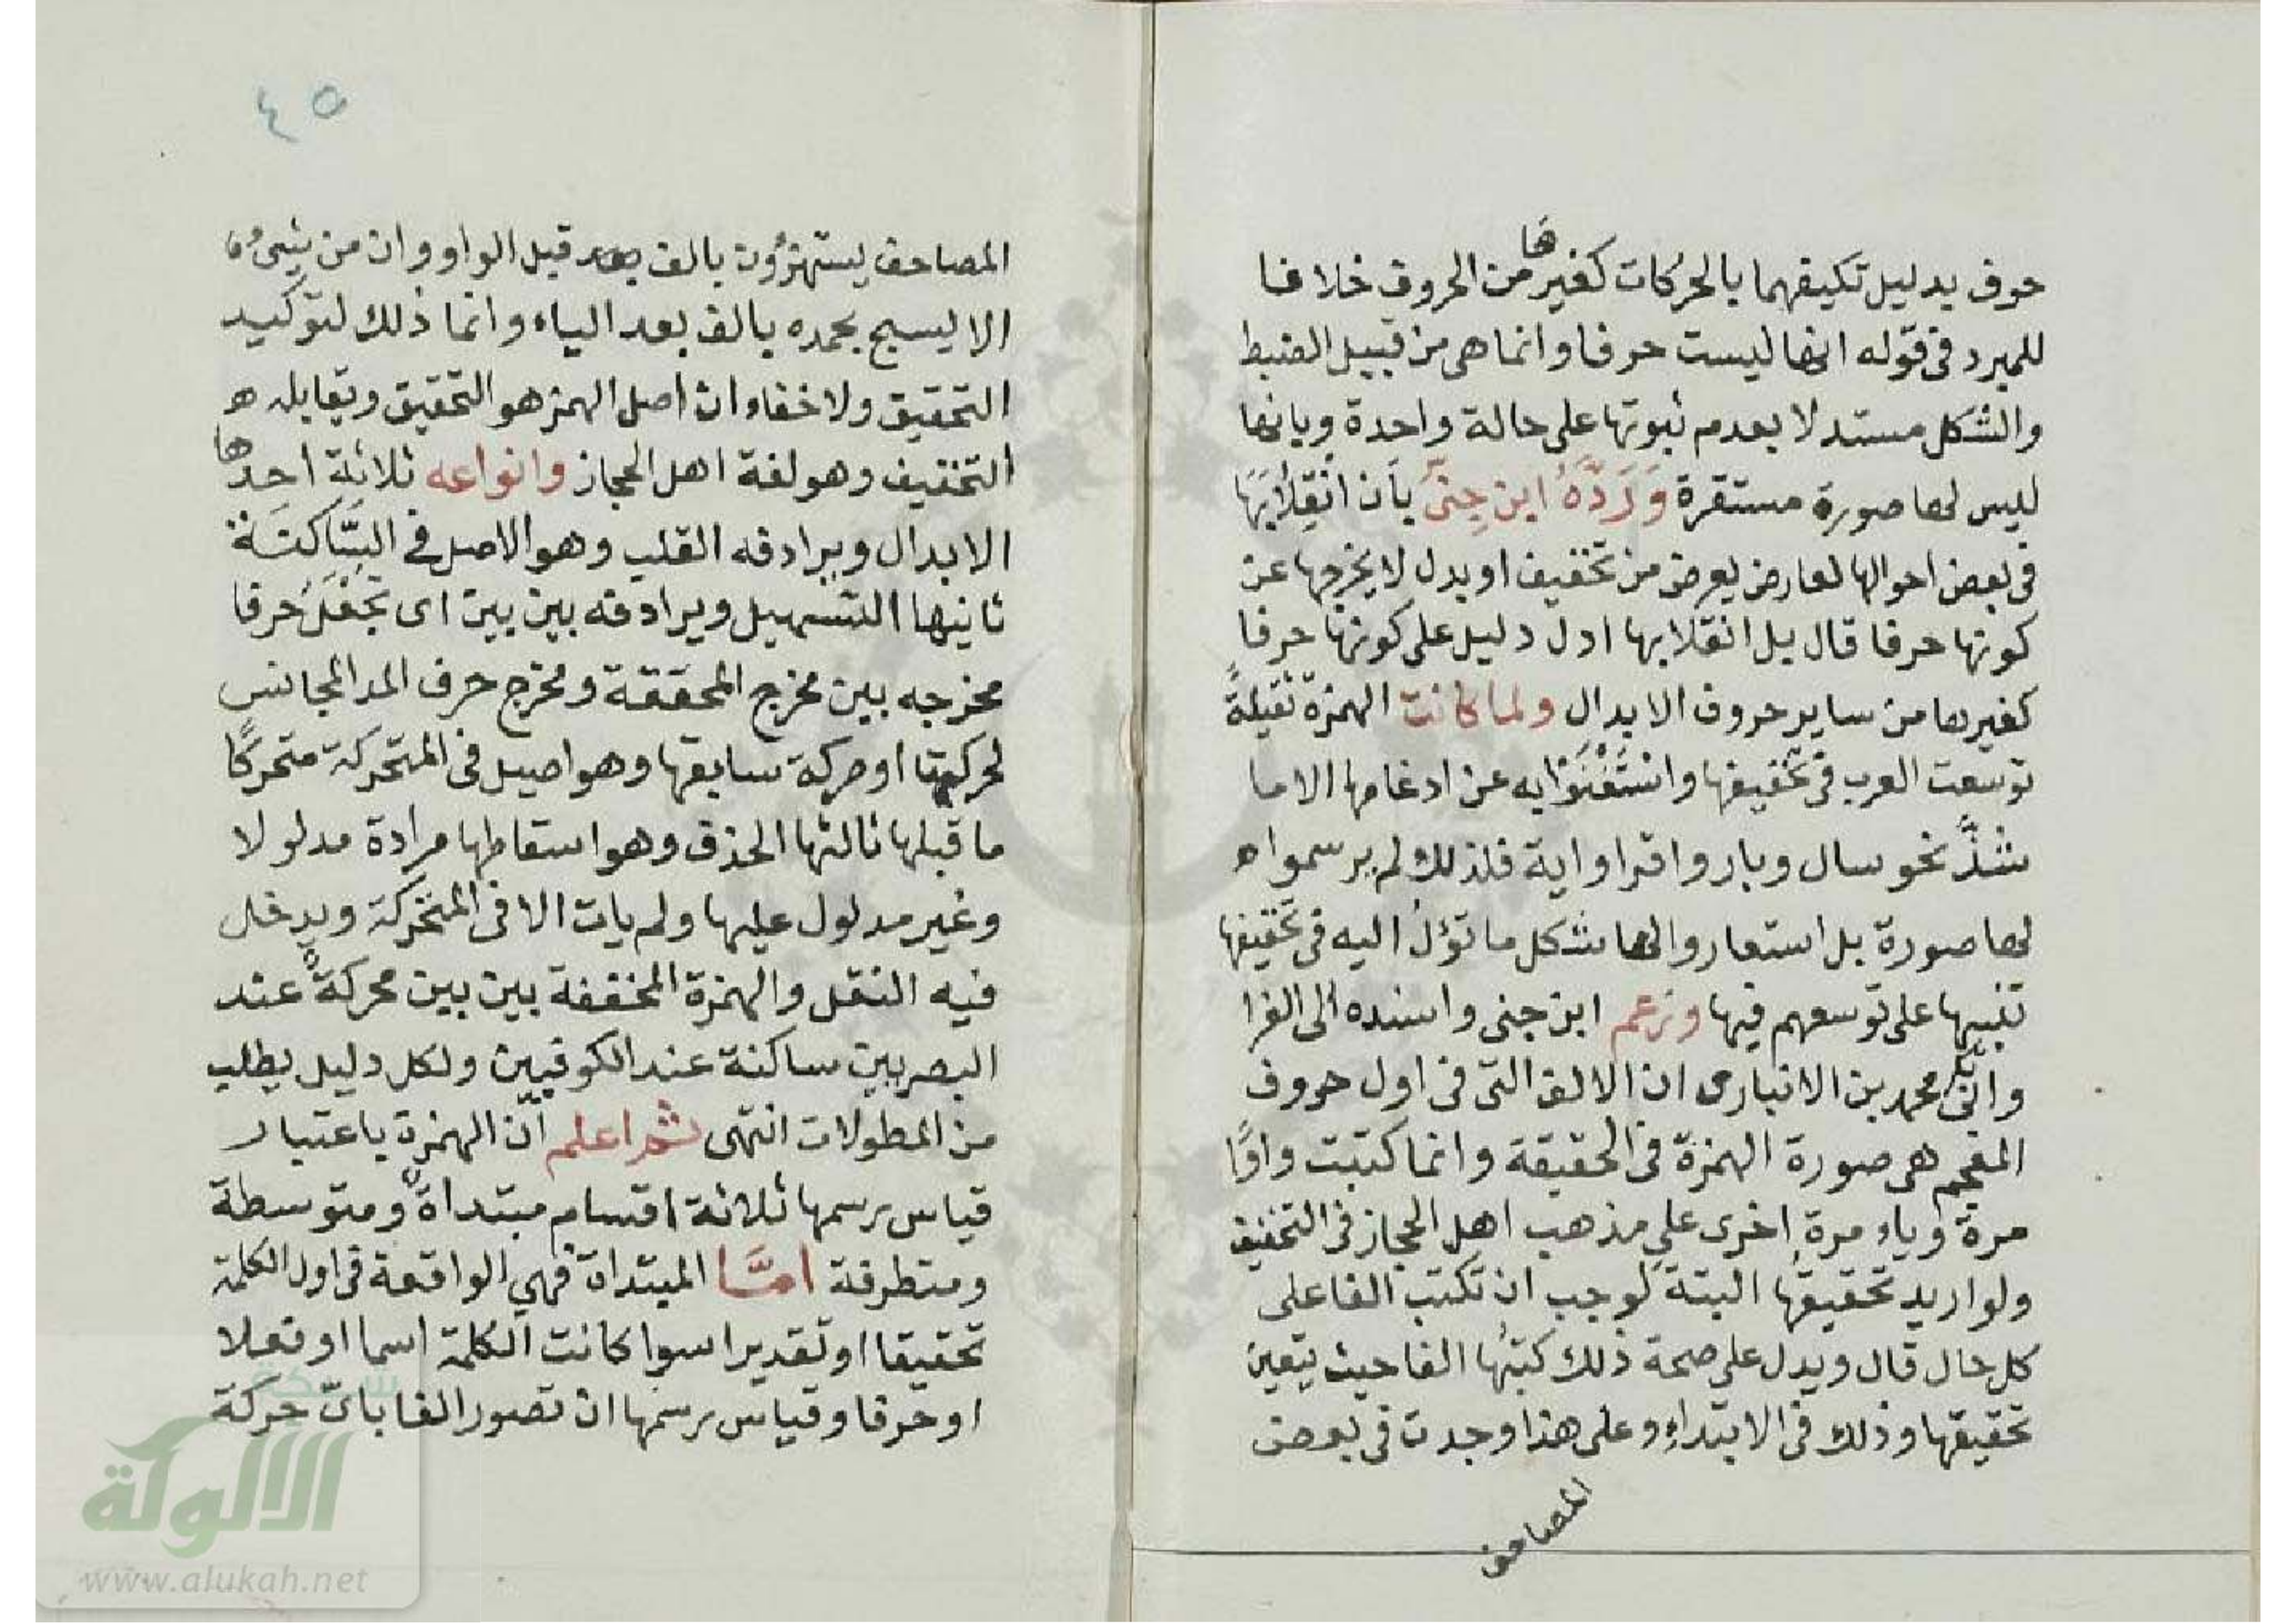 حرف بدليل تكيفهما بالحركات كغيرها من الحروف خلافا
للمبرد في قوله انها ليست حرفا وانما هي من قبيل الضبط
والشكل مستدلا بعدم ثبوتها على حالة واحدة وبانها
ليس لها صورة مستقرة وَرَدَّهُ ابن جِنىّ بأن انقِلابَهَا
في بعض احوالها لعارض يعرض من تخفيف او بدل لا يخرجها عن
كونها حرفا قال بل انقلابها ادل دليل على كونها حرفا
كغيرها من ساير حروف الابدال ولما كانت الهمزة ثقيلةً
توسعت العرب في تخفيفها واستَغْنَوْا به عن ادغامها الا ما
شذَّ نحو سال وبار واقرا واية فلذلك لم يرسموا ه
لها صورة بل استعاروا لها شكل ما تؤلُ اليه في تخفيفها
تنبيها على توسعهم فيها وزعم ابن جنى واسنده الى الفرا
محمد بن الانبارى ان الالف التى في اول حروف
المعجم هي صورة الهمزة في الحقيقة وانما كتبت واوًا
مرة وياء مرة اخرى على مذهب اهل الحجاز في التخفيف
ولو اريد تحقيقُها البتة لوجب ان تكتب الفا على
كل حال قال ويدل على صحة ذلك كتبُها الفا حيث يتعين
تحقيقها وذلك في الابتداء وعلى هذا وجدت في بعض
المصاحف
٤٥
المصاحف يستهزؤن بالف قبل الواو وان من شىء
الا يسبح بحمده بالف بعد الياء وانما ذلك لتوكيد
التحقيق ولا خفاء ان اصل الهمز هو التحقيق ويقابله ه
التخفيف وهو لغة اهل الحجاز وانواعه ثلاثة احدها
الابدال ويرادفه القلب وهو الاصل في السَّاكنَة
ثانيها التسهيل ويرادفه بين بين اى تجْعَلُ حرفا
مخرجه بين مخرج المحققة ومخرج حرف المد المجانس
لحركتها او حركة سابقها وهو اصيل في المتحركة متحركًا
ما قبلها ثالثها الحذف وهو اسقاطها مرادة مدلولا
وغير مدلول عليها ولم يات الا في المتحركة ويدخل
فيه النقل والهمزة المخففة بين بين محركةٌ عند
البصريين ساكنة عند الكوفيين ولكل دليل يطلب
من المطولات انتهى ثم اعلم أنّ الهمزة باعتبار
قياس رسمها ثلاثة اقسام مبتداةٌ ومتوسطة
ومتطرفة امَّا المبتداة فهي الواقعة في اول الكلمة
تحقيقا او تقديرا سوا كانت الكلمة اسما او فعلا
او حرفا وقياس رسمها ان تصور الفا باىّ حركة
شبكة
الألوكة
www.alukah.net